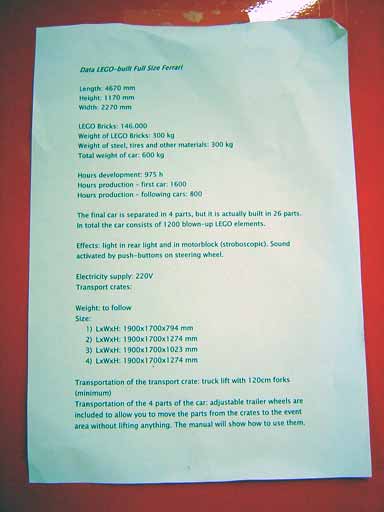 Data LEGO-built Full Size Ferrari
Length: 4670 mm
Height: 1170 mm
Width: 2270 mm
LEGO Bricks: 146.000
Weight of LEGO Bricks: 300 kg
Weight of steel, tires and other materials: 300 kg
Total weight of car: 600 kg
Hours development: 975 h
Hours production - first car: 1600
Hours production - following cars: 800
The final car is separated in 4 parts, but it is actually built in 26 parts.
In total the car consists of 1200 blown-up LEGO elements.
Effects: light in rear light and in motorblock (stroboscopic). Sound
activated by push-buttons on steering wheel.
Electricity supply: 220V
Transport crates:
Weight: to follow
Size:
1) LxWxH: 1900x1700x794 mm
2) LxWxH: 1900x1700x1274 mm
3) LxWxH: 1900x1700x1023 mm
4) LxWxH: 1900x1700x1274 mm
Transportation of the transport crate: truck lift with 120cm forks
(minimum)
Transportation of the 4 parts of the car: adjustable trailer wheels are
included to allow you to move the parts from the crates to the event
area without lifting anything. The manual will show how to use them.